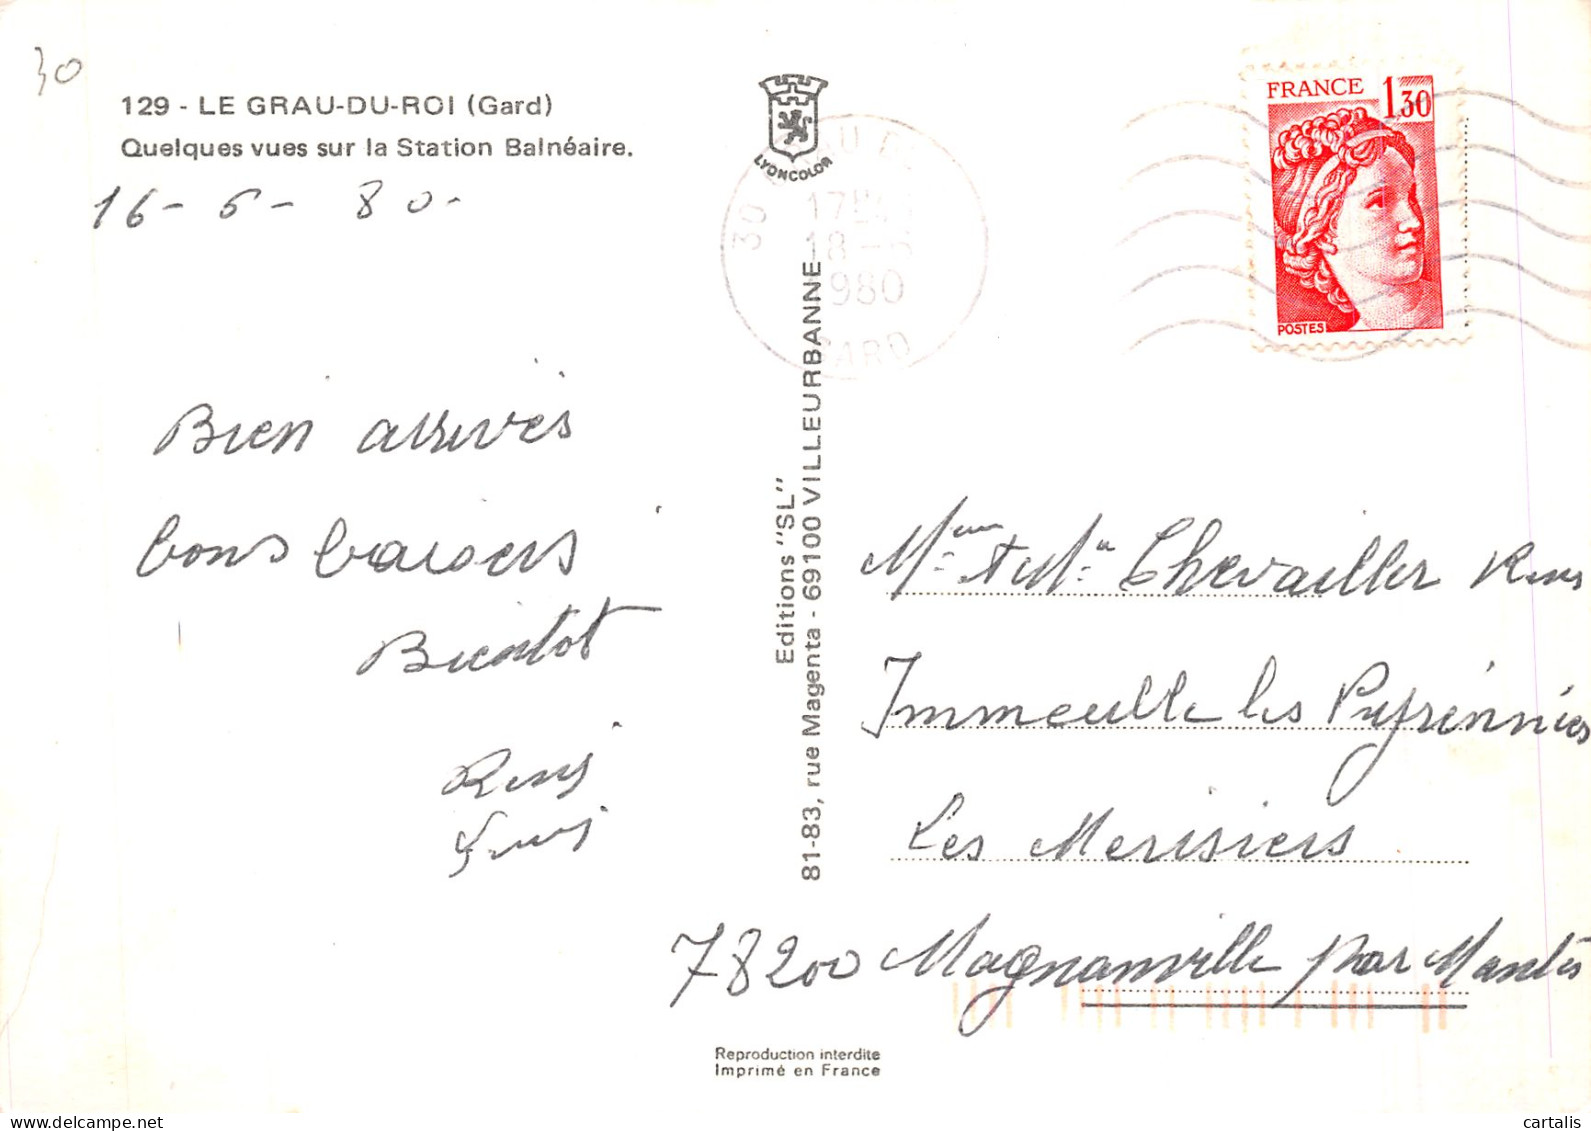 30
129 - LE GRAU-DU-ROI (Gard)
Quelques vues sur la Station Balnéaire.
16-6-80-
Bien arrivés
bons baisers
Bientot
LYONCOLOR
Editions "SL"
81-83, rue Magenta - 69100 VILLEURBANNE
30
18 - 6
1980
GARD
FRANCE 1,30
POSTES
Chevallier
Immeuble les Pyrénnées
Les Merisiers
78200 Magnanville par Mantes
Reproduction interdite
Imprimé en France
cartalis